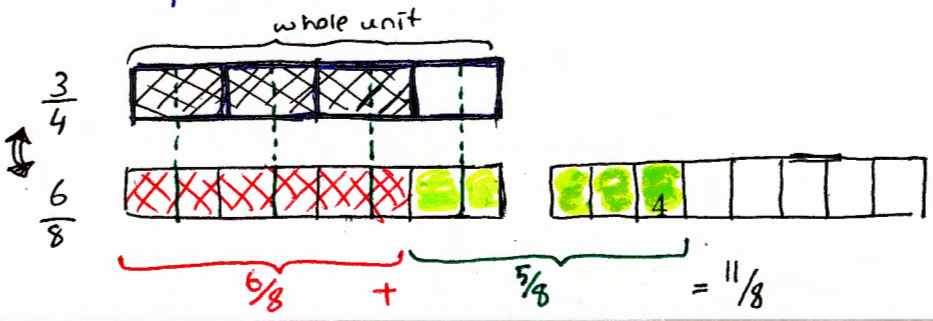 whole unit
3/4
6/8
4
6/8 + 5/8 = 11/8